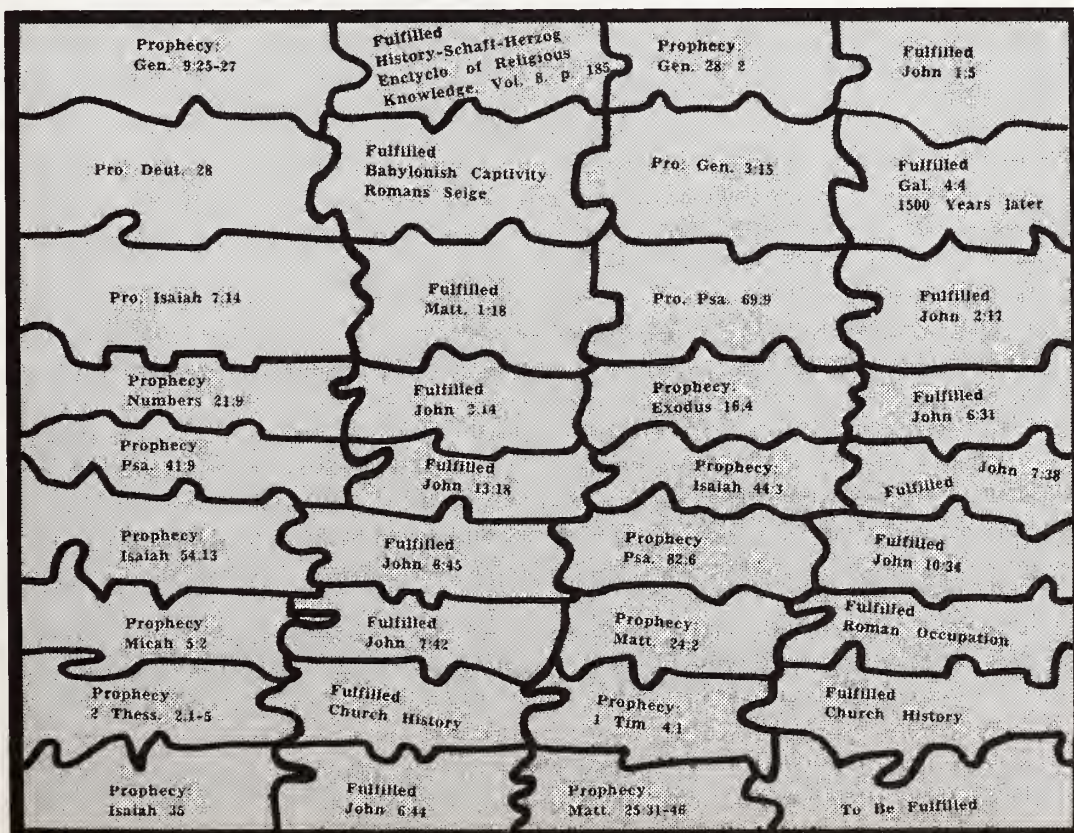 Prophecy:
Gen. 9:25-27
Fulfilled
History-Schaff-Herzog
Enclyclo of Religious
Knowledge. Vol. 8. p 185
Prophecy:
Gen. 28: 2
Fulfilled
John 1:5
Pro: Deut. 28
Fulfilled
Babylonish Captivity
Romans Seige
Pro: Gen. 3:15
Fulfilled
Gal. 4:4
1500 Years later
Pro: Isaiah 7.14
Fulfilled
Matt. 1:18
Pro. Psa. 69.9
Fulfilled
John 2:17
Prophecy:
Numbers 21:9
Fulfilled
John 3.14
Prophecy:
Exodus 16.4
Fulfilled
John 6:31
Prophecy
Psa. 41:9
Fulfilled
John 13:18
Prophecy:
Isaiah 44:3
John 7:38
Fulfilled
Prophecy:
Isaiah 54.13
Fulfilled
John 6:45
Prophecy
Psa. 82.6
Fulfilled
John 10:34
Prophecy:
Micah 5:2
Fulfilled
John 7:42
Prophecy:
Matt. 24:2
Fulfilled
Roman Occupation
Prophecy:
2 Thess. 2.1-5
Fulfilled
Church History
Prophecy:
1 Tim 4.1
Fulfilled
Church History
Prophecy:
Isaiah 35
Fulfilled
John 6:44
Prophecy:
Matt. 25:31-46
To Be Fulfilled